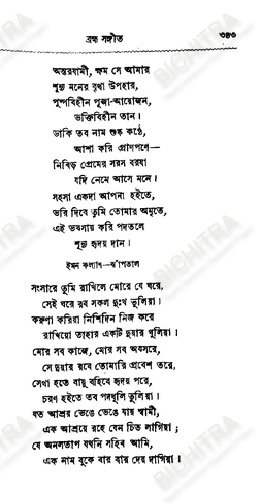 ব্রহ্ম সঙ্গীত ৩৪৩
অন্তরযামী, ক্ষম সে আমার
শূন্য মনের বৃথা উপহার,
পুষ্পবিহীন পূজা-আয়োজন,
ভক্তিবিহীন তান।
ডাকি তব নাম শুষ্ক কণ্ঠে,
আশা করি প্রাণপণে—
নিবিড় প্রেমের সরস বরষা
যদি নেমে আসে মনে।
সহসা একদা আপনা হইতে,
ভরি দিবে তুমি তোমার অমৃতে,
এই ভরসায় করি পদতলে
শূন্য হৃদয় দান।
ইমন কল্যাণ—ঝাঁপতাল
সংসারে তুমি রাখিলে মোরে যে ঘরে,
সেই ঘরে রব সকল দুঃখ ভুলিয়া।
করুণা করিয়া নিশিদিন নিজ করে
রাখিয়ো তাহার একটি দুয়ার খুলিয়া।
মোর সব কাজে, মোর সব অবসরে,
সে দুয়ার রবে তোমারি প্রবেশ তরে,
সেথা হতে বায়ু বহিবে হৃদয় পরে,
চরণ হইতে তব পদধূলি তুলিয়া।
যত আশ্রয় ভেঙে ভেঙে যায় স্বামী,
এক আশ্রয়ে রহে যেন চিত লাগিয়া;
যে অনলতাপ যখনি সহিব আমি,
এক নাম বুকে বার বার দেয় দাগিয়া॥
BICHITRA